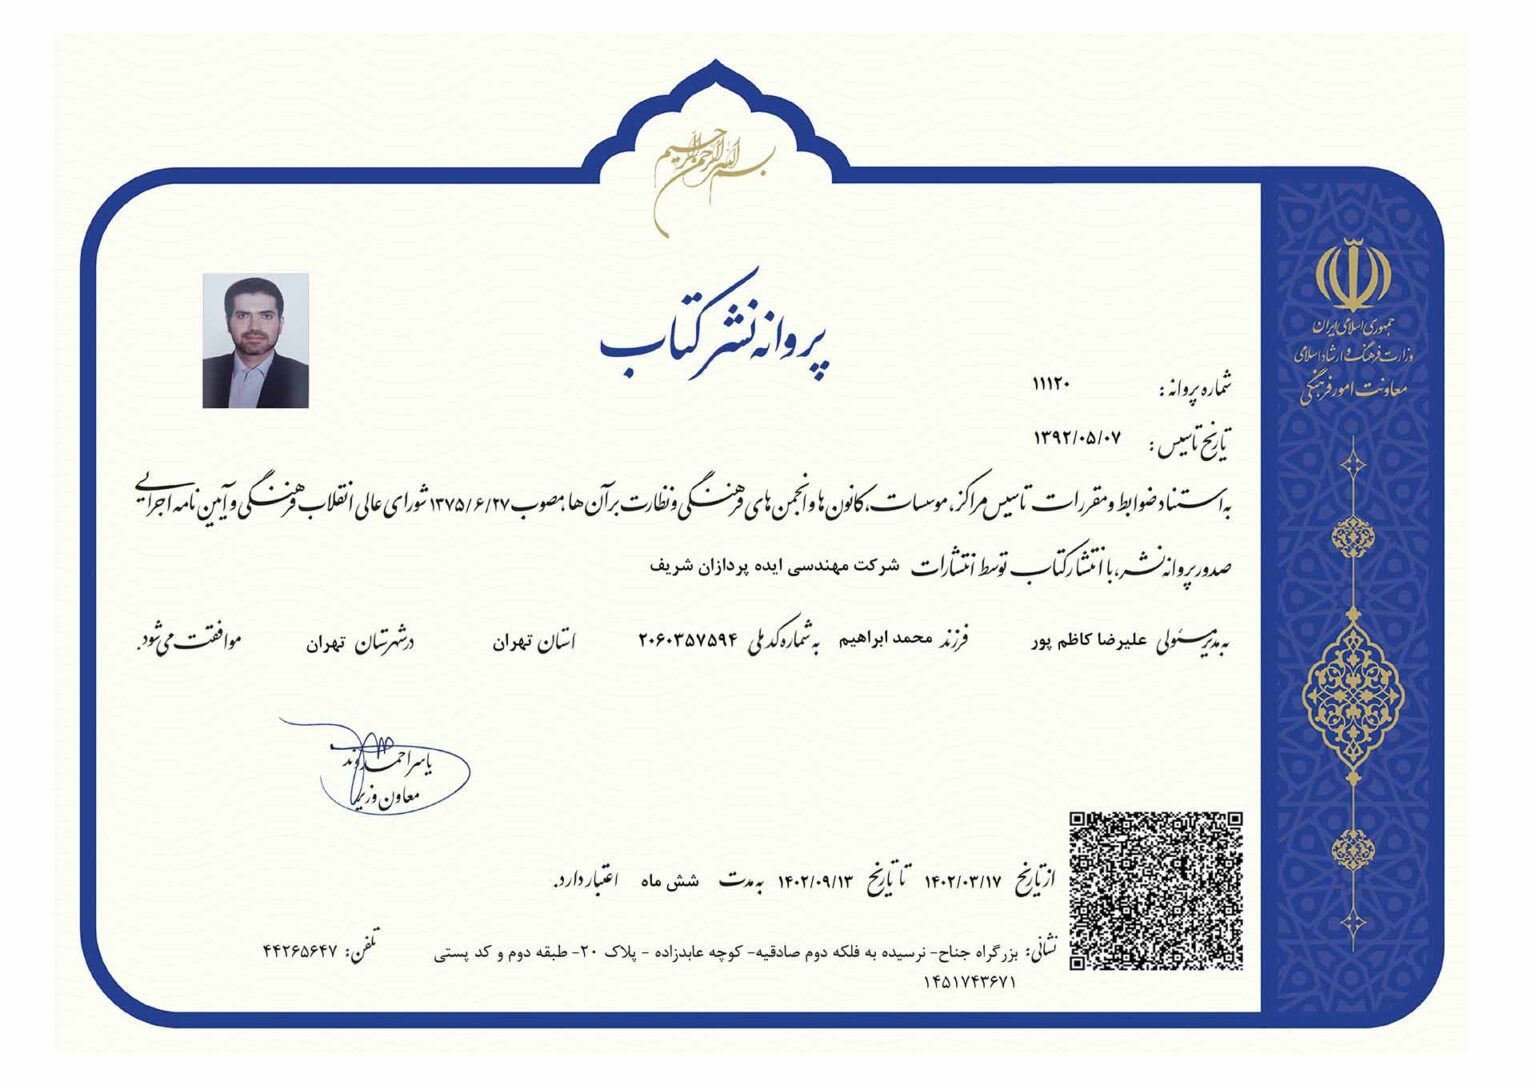 بسم الله الرحمن الرحیم
جمهوری اسلامی ایران
وزارت فرهنگ و ارشاد اسلامی
معاونت امور فرهنگی
پروانه نشر کتاب
شماره پروانه : ۱۱۱۲۰
تاریخ تاسیس : ۱۳۹۲/۰۵/۰۷
به استناد ضوابط و مقررات تاسیس مراکز، موسسات، کانون ها و انجمن های فرهنگی و نظارت بر آن ها، مصوب ۱۳۷۵/۶/۲۷ شورای عالی انقلاب فرهنگی و آیین نامه اجرایی
صدور پروانه نشر، با انتشار کتاب توسط انتشارات شرکت مهندسی ایده پردازان شریف
به مدیر مسئولی علیرضا کاظم پور فرزند محمد ابراهیم به شماره کد ملی ۲۰۶۰۳۵۷۵۹۴ استان تهران در شهرستان تهران موافقت می شود.
یاسر احمدوند
معاون وزیر
از تاریخ ۱۴۰۲/۰۳/۱۷ تا تاریخ ۱۴۰۲/۰۹/۱۳ به مدت شش ماه اعتبار دارد.
نشانی: بزرگراه جناح- نرسیده به فلکه دوم صادقیه- کوچه عابدزاده - پلاک ۲۰- طبقه دوم و کد پستی
۱۴۵۱۷۴۳۶۷۱
تلفن: ۴۴۲۶۵۶۴۷